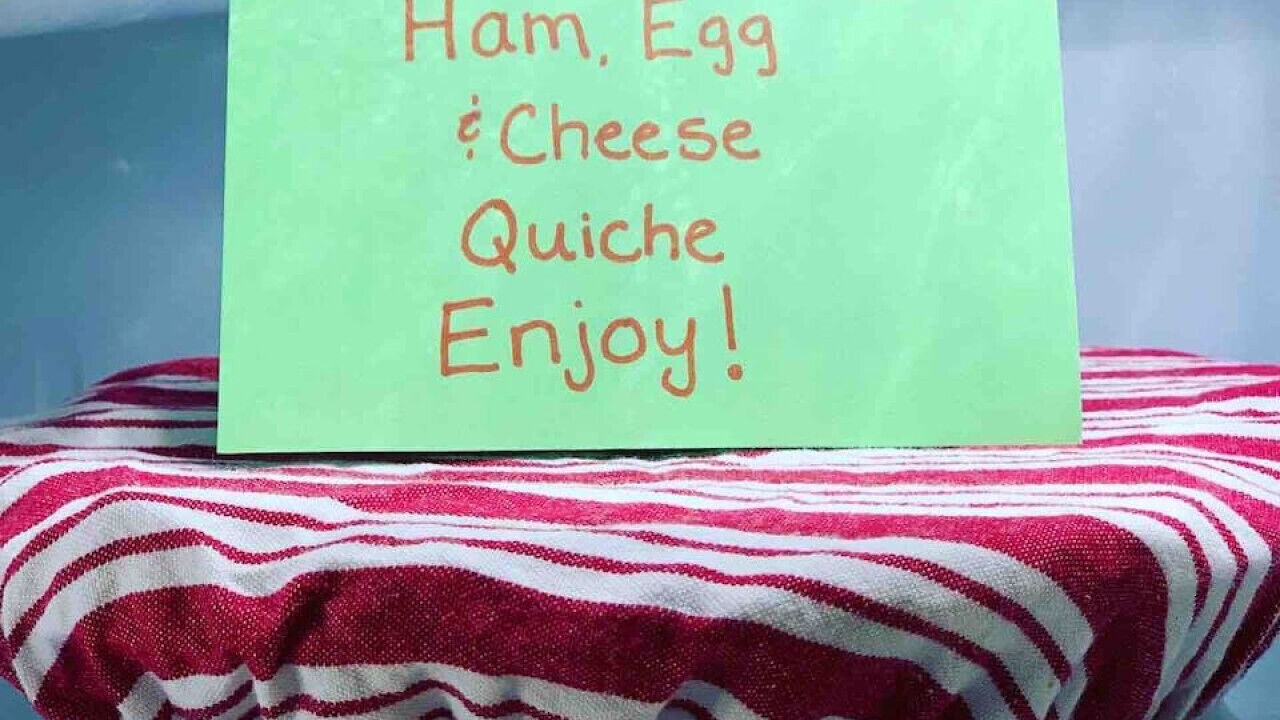 Ham, Egg
& Cheese
Quiche
Enjoy!